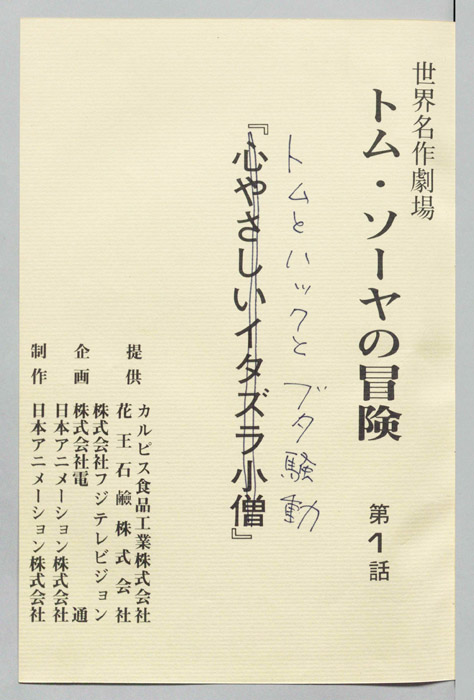 世界名作劇場
トム・ソーヤの冒険
第1話
トムとハックとブタ騒動
『心やさしいイタズラ小僧』
提供
カルピス食品工業株式会社
花王石鹸株式会社
企画
株式会社フジテレビジョン
株式会社電通
日本アニメーション株式会社
制作
日本アニメーション株式会社